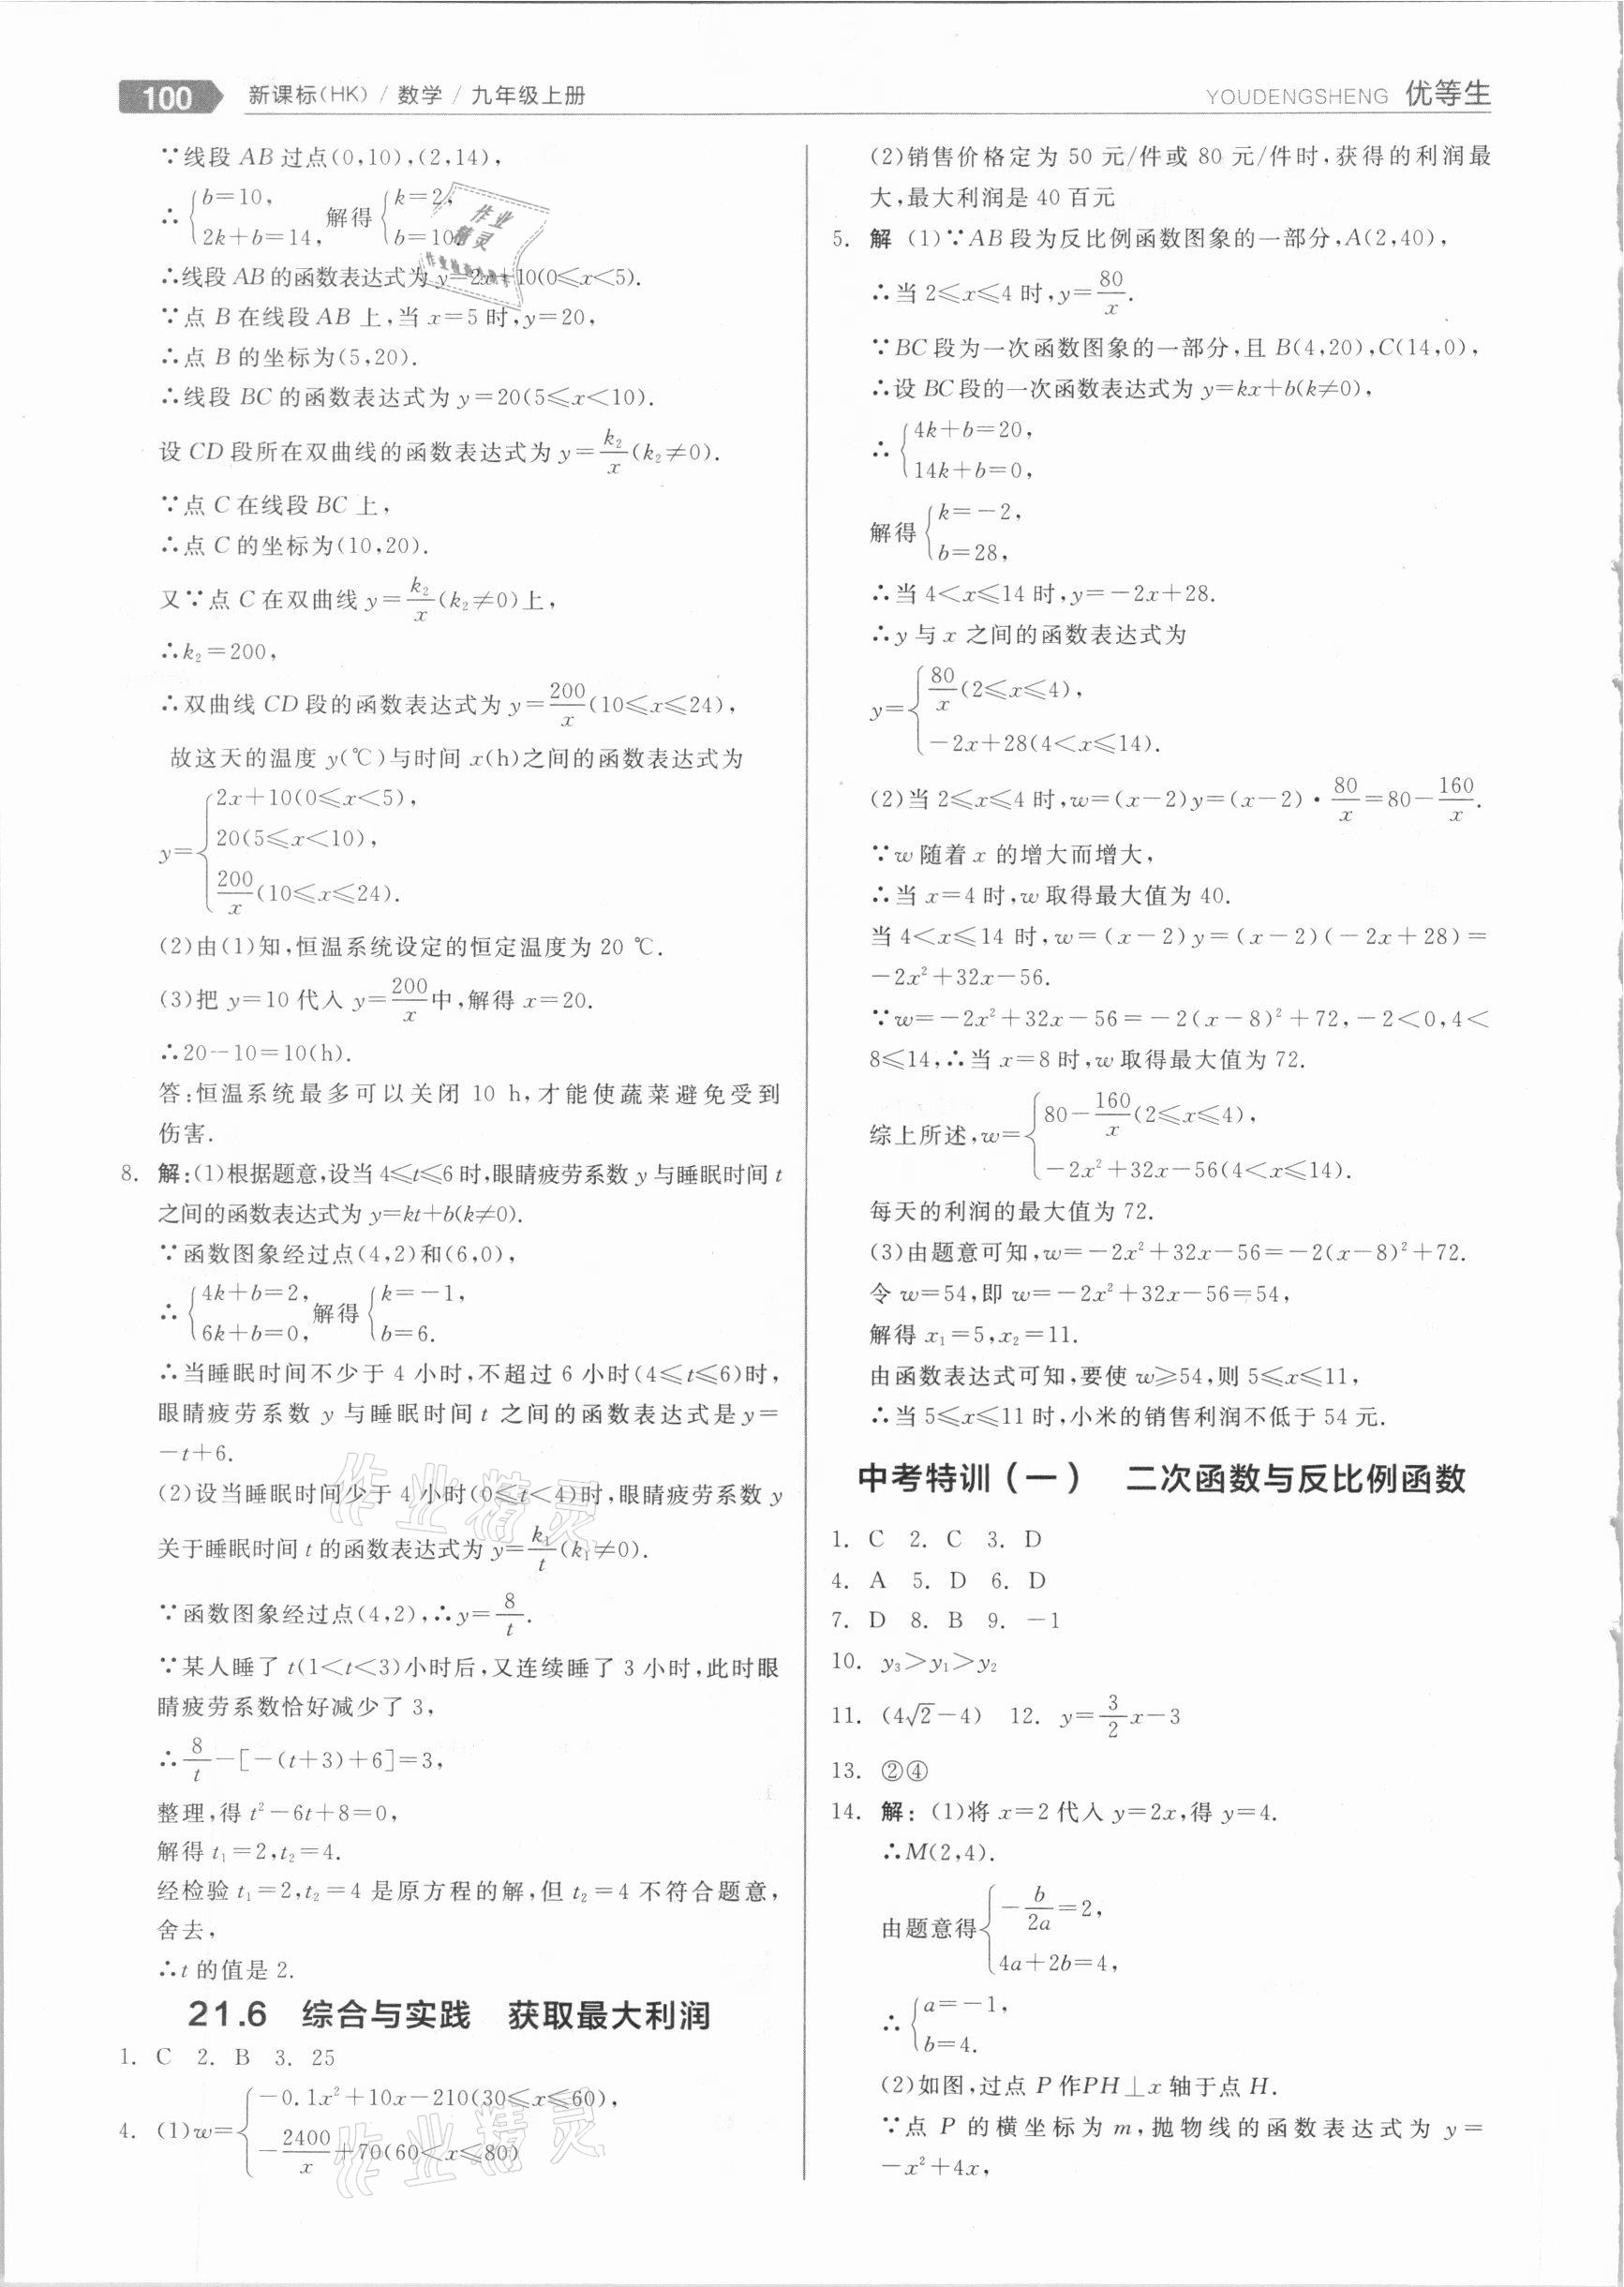 100 新课标(HK) / 数学 / 九年级上册
YOUDENGSHENG 优等生
∵线段 AB 过点(0,10),(2,14),
∴{b=10, 2k+b=14, 解得{k=2, b=10.
∴线段 AB 的函数表达式为 y=2x+10(0⩽x<5).
∵点 B 在线段 AB 上,当 x=5 时,y=20,
∴点 B 的坐标为(5,20).
∴线段 BC 的函数表达式为 y=20(5⩽x<10).
设 CD 段所在双曲线的函数表达式为 y=k₂/x(k₂≠0).
∵点 C 在线段 BC 上,
∴点 C 的坐标为(10,20).
又∵点 C 在双曲线 y=k₂/x(k₂≠0)上,
∴k₂=200,
∴双曲线 CD 段的函数表达式为 y=200/x(10⩽x⩽24),
故这天的温度 y(℃)与时间 x(h)之间的函数表达式为
y={2x+10(0⩽x<5),
20(5⩽x<10),
200/x(10⩽x⩽24).
(2)由(1)知,恒温系统设定的恒定温度为 20 ℃.
(3)把 y=10 代入 y=200/x中,解得 x=20.
∴20-10=10(h).
答:恒温系统最多可以关闭 10 h,才能使蔬菜避免受到
伤害.
8. 解:(1)根据题意,设当 4⩽t⩽6 时,眼睛疲劳系数 y 与睡眠时间 t
之间的函数表达式为 y=kt+b(k≠0).
∵函数图象经过点(4,2)和(6,0),
∴{4k+b=2, 6k+b=0, 解得{k=-1, b=6.
∴当睡眠时间不少于 4 小时,不超过 6 小时(4⩽t⩽6)时,
眼睛疲劳系数 y 与睡眠时间 t 之间的函数表达式是 y=
-t+6.
(2)设当睡眠时间少于 4 小时(0⩽t<4)时,眼睛疲劳系数 y
关于睡眠时间 t 的函数表达式为 y=k₁/t(k₁≠0).
∵函数图象经过点(4,2),∴y=8/t.
∵某人睡了 t(1<t<3)小时后,又连续睡了 3 小时,此时眼
睛疲劳系数恰好减少了 3,
∴8/t-[-(t+3)+6]=3,
整理,得 t²-6t+8=0,
解得 t₁=2,t₂=4.
经检验 t₁=2,t₂=4 是原方程的解,但 t₂=4 不符合题意,
舍去,
∴t 的值是 2.
21.6 综合与实践 获取最大利润
1. C 2. B 3. 25
4. (1)w={-0.1x²+10x-210(30⩽x⩽60),
-2400/x+70(60<x⩽80)
(2)销售价格定为 50 元/件或 80 元/件时,获得的利润最
大,最大利润是 40 百元
5. 解 (1)∵AB 段为反比例函数图象的一部分,A(2,40),
∴当 2⩽x⩽4 时,y=80/x.
∵BC 段为一次函数图象的一部分,且 B(4,20),C(14,0),
∴设 BC 段的一次函数表达式为 y=kx+b(k≠0),
∴{4k+b=20,
14k+b=0,
解得{k=-2,
b=28,
∴当 4<x⩽14 时,y=-2x+28.
∴y 与 x 之间的函数表达式为
y={80/x(2⩽x⩽4),
-2x+28(4<x⩽14).
(2)当 2⩽x⩽4 时,w=(x-2)y=(x-2)·80/x=80-160/x.
∵w 随着 x 的增大而增大,
∴当 x=4 时,w 取得最大值为 40.
当 4<x⩽14 时,w=(x-2)y=(x-2)(-2x+28)=
-2x²+32x-56.
∵w=-2x²+32x-56=-2(x-8)²+72,-2<0,4<
8⩽14,∴当 x=8 时,w 取得最大值为 72.
综上所述,w={80-160/x(2⩽x⩽4),
-2x²+32x-56(4<x⩽14).
每天的利润的最大值为 72.
(3)由题意可知,w=-2x²+32x-56=-2(x-8)²+72.
令 w=54,即 w=-2x²+32x-56=54,
解得 x₁=5,x₂=11.
由函数表达式可知,要使 w⩾54,则 5⩽x⩽11,
∴当 5⩽x⩽11 时,小米的销售利润不低于 54 元.
中考特训(一) 二次函数与反比例函数
1. C 2. C 3. D
4. A 5. D 6. D
7. D 8. B 9. -1
10. y₃>y₁>y₂
11. (4√2-4) 12. y=3/2x-3
13. ②④
14. 解:(1)将 x=2 代入 y=2x,得 y=4.
∴M(2,4).
由题意得{-b/2a=2,
4a+2b=4,
∴{a=-1,
b=4.
(2)如图,过点 P 作PH⊥x 轴于点 H.
∵点 P 的横坐标为 m,抛物线的函数表达式为 y=
-x²+4x,
作业精灵
作业精灵
作业精灵